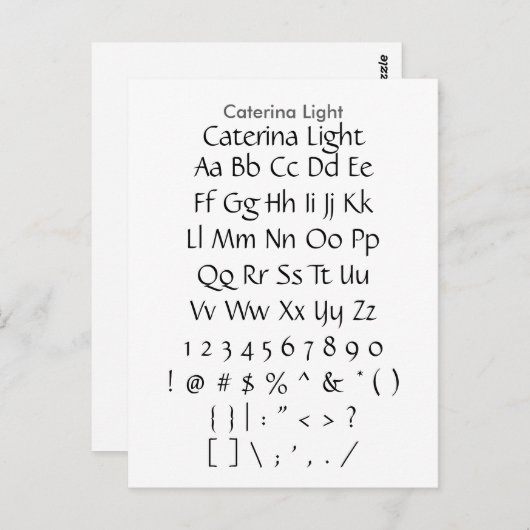 Caterina Light
Caterina Light
Aa Bb Cc Dd Ee
Ff Gg Hh Ii Jj Kk
Ll Mm Nn Oo Pp
Qq Rr Ss Tt Uu
Vv Ww Xx Yy Zz
1 2 3 4 5 6 7 8 9 0
! @ # $ % ^ & * ( )
{ } | : " < > ?
[ ] \ ; ' , . /